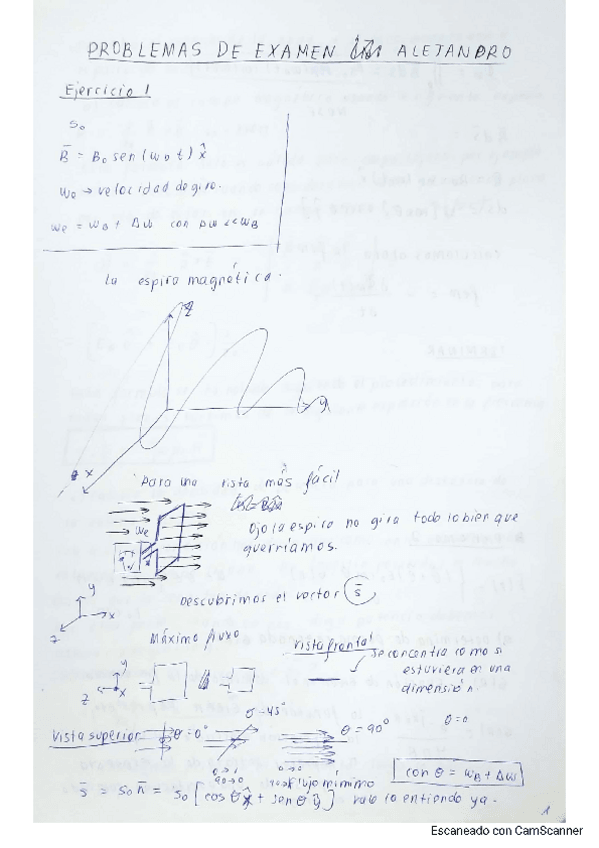 PROBLEMAS DE EXAMEN ALEJANDRO
Ejercicio 1
S₀
B̄ = B₀ sen(ω₀t) x̂
ωe → velocidad de giro.
ωe = ωB + Δω con Δω << ωB
la espira magnética.
z
y
x
Para una vista más fácil
ωe
Ojo la espira no gira todo lo bien que
querríamos.
y
x
z
Descubrimos el vector s̄
Máximo flujo
Vista frontal
y
z
x
Se concentra como si
estuviera en una
dimensión.
Vista superior
θ = 0°
θ = 45°
θ = 90°
θ = 0
flujo mínimo
con θ = ωB + Δω
s̄ = s₀ n̄ = s₀ [cos θ x̂ + sen θ ŷ] vale lo entiendo ya.
1
Escaneado con CamScanner